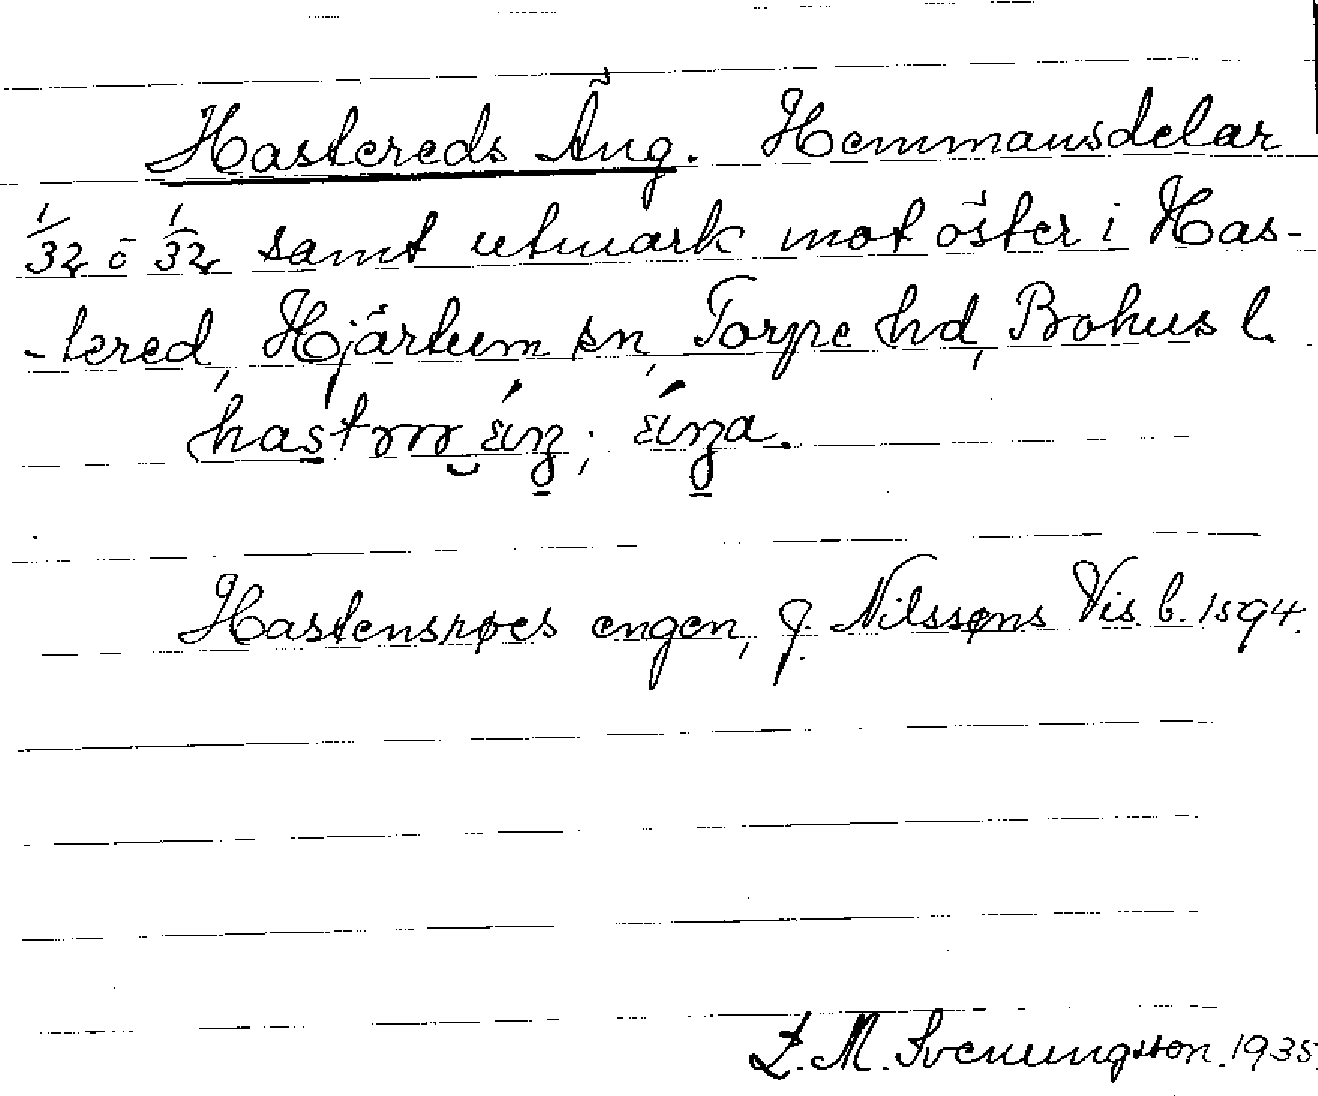 Hastereds Äng. Hemmansdelar
1/32 o 1/32 samt utmark mot öster i Has-
-tered, Hjärtum sn, Torpe hd, Bohus l.
Hastensrøes engen, J. Nilssøns Vis. b. 1594.
L. M. Svenungsson. 1935.